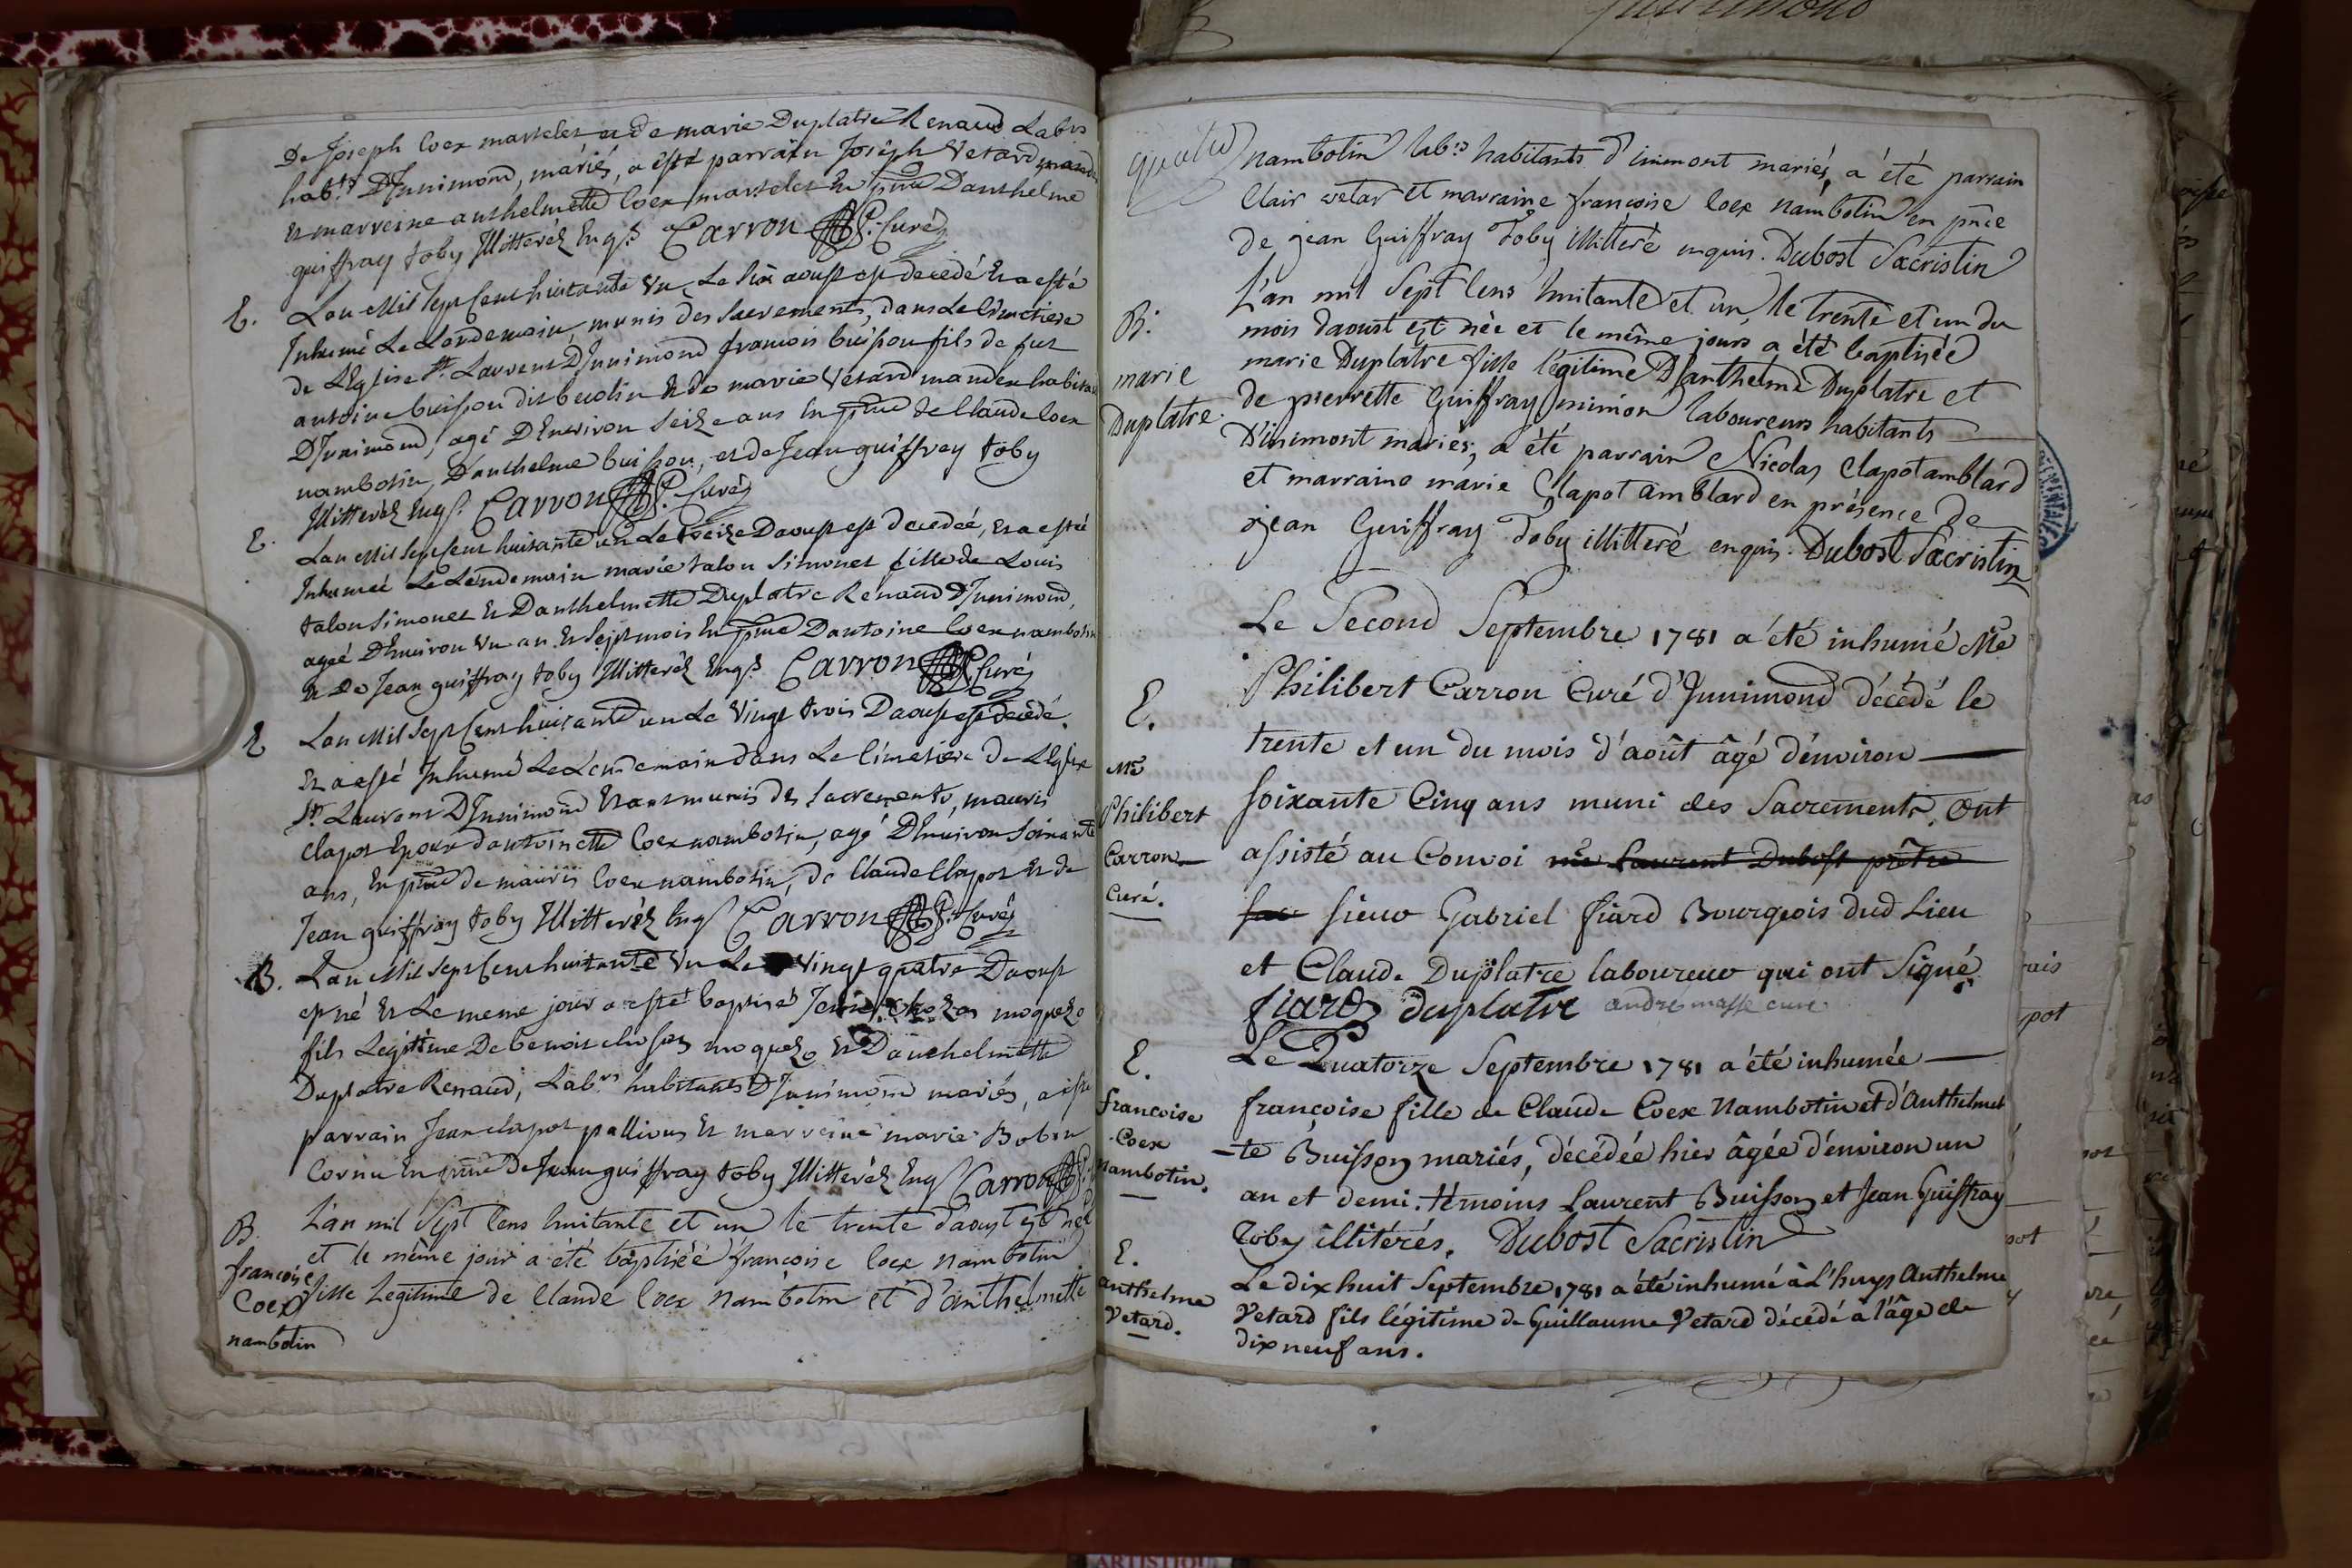 De Joseph Coex marteler et de marie Duplatre Renaud Labrs
habts D'Innimond, mariés, a esté parrain Joseph Vetard
et marreine anthelmette Coex marteler En pnce Danthelme
guiffray toby Illitteréz Enqs. Carron Curé
E.
Lan Mil sept Cent huitante Un, Le six aoust est decedé Et a esté
Inhumé Le Lendemain, munis des sacrements, dans Le Cimetiere
de L'Eglise St. Laurent D'Innimond francois buisson fils de fut
antoine buisson dit berolin Et de marie Vetard mandex habitant
D'Innimond, agé D'Environ Seize ans En pnce de Claude Coex
nambotin, Danthelme buisson, et de Jean guiffrey toby
Illitteréz Enqs. Carron Curé
E.
Lan Mil sept Cent huitante un Le treize Daoust est decedeé, Et a esté
Inhumeé Le Lendemain marie talon Simonet fille de Louis
talon Simonet Et Danthelmette Duplatre Renaud D'Innimond,
ageé D'Environ Un an Et Sept mois En pnce Dantoine Coex nambotin
et De Jean guiffray toby Illitteréz Enqs. Carron Curé
E
Lan Mil Sept Cent huitante un Le Vingt trois Daoust est decedé
Et a esté Inhumé Le Lendemain dans Le Cimetiere de L'Eglise
St. Laurent D'Innimond Etant munis des Sacrements, mauris
clapot Epoux dantoinette Coex nambotin, agé D'Environ Soixante
ans, En pnce de mauris Coex nambotin, de Claude Clapot et de
Jean guiffray toby Illitteréz Enqs Carron Curé
B.
Lan Mil Sept Cent huitante Un Le Vingt quatre Daoust
est né Et Le meme jour a esté baptisé moquezo
fils Legitime De benoit moquezo Et Danthelmette
Duplatre Renaud, Labrs habitants D'Innimond mariés, a esté
parrain Jean clapot pallious Et marreine marie Bobin
Cornu En pnce De Jean guiffray toby Illitteréz Enqs Carron
B.
françoise
Coex
nambotin
L'an mil Sept Cens huitante et un le trente d'aoust est née
et le même jour a été baptiséé françoise Coex nambotin
fille Legitime de Claude Coex nambotin et d'anthelmette
quatre
nambotin labrs habitants d'innimont mariés, a été parrain
Clair vetar et marraine françoise Coex nambotin en pnce
de jean Guiffray Toby illitteré enquis. Dubost Sacristin
B.
marie
Duplatre.
L'an mil Sept Cens huitante et un, le trente et un du
mois d'aoust est née et le même jours a été baptiséé
marie Duplatre fille légitime D'anthelme Duplatre et
de pierrette Guiffray minion laboureurs habitants
D'inimont mariés, a été parrain Nicolas Clapot amblard
et marraine marie Clapot amblard en présence de
jean Guiffray Toby illitteré enquis. Dubost Sacristin
E.
Me
Philibert
Carron
Curé.
Le Second Septembre 1781 a été inhumé Me
Philibert Carron Curé d'Innimond décédé le
trente et un du mois d'août âgé d'environ
soixante Cinq ans muni des Sacrements, Ont
assisté au Convoi me Laurent Dubost prêtre
sac sieur Gabriel fiard Bourgeois dud Lieu
et Claude Duplatre laboureur qui ont Signé.
fiard duplatre andre masse cure
E.
francoise
Coex
Nambotin.
Le Quatorze Septembre 1781 a été inhumée
françoise fille de Claude Coex Nambotin et d'Anthelmet
-te Buisson mariés, décédée hier âgée d'environ un
an et demi. témoins Laurent Buisson et Jean Guiffray
Toby illitérés. Dubost Sacristin
E.
Anthelme
Vetard.
Le dix huit Septembre 1781 a été inhumé à L'huys Anthelme
Vetard fils légitime de Guillaume Vetard décédé à l'âge de
dix neuf ans.